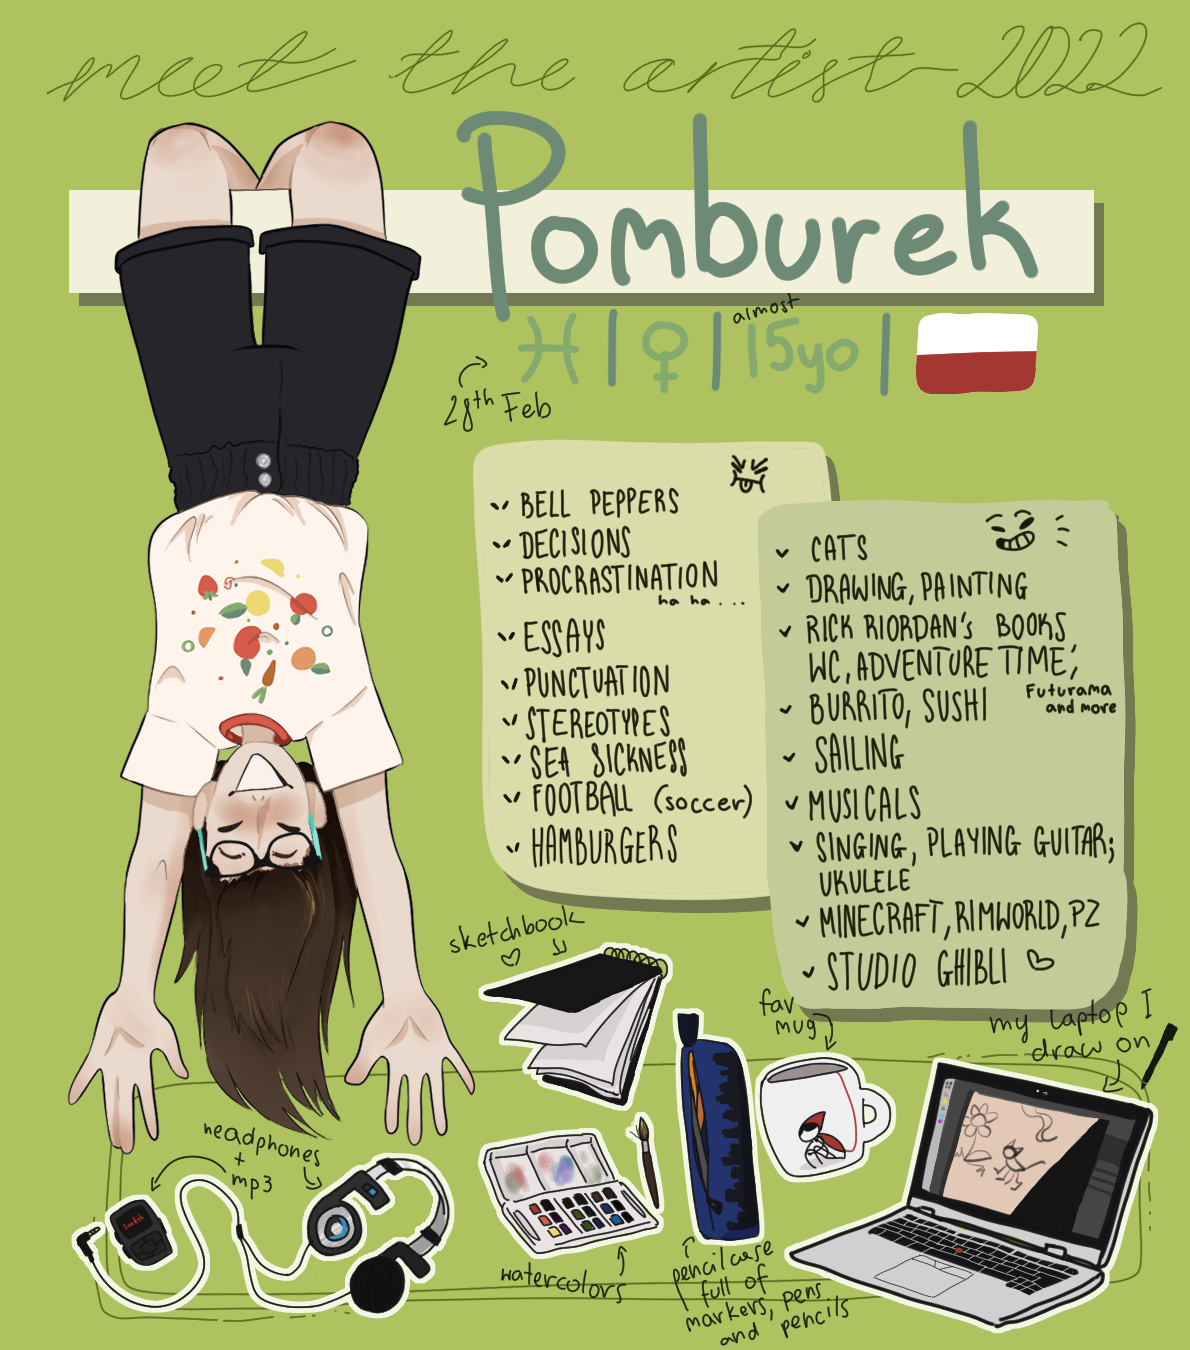 meet the artist 2022
Pomburek
almost
15yo
28th Feb
BELL PEPPERS
DECISIONS
PROCRASTINATION
ha ha...
ESSAYS
PUNCTUATION
STEREOTYPES
SEA SICKNESS
FOOTBALL (soccer)
HAMBURGERS
CATS
DRAWING, PAINTING
RICK RIORDAN's BOOKS
WC, ADVENTURE TIME;
Futurama
and more
BURRITO, SUSHI
SAILING
MUSICALS
SINGING, PLAYING GUITAR;
UKULELE
MINECRAFT, RIMWORLD, PZ
STUDIO GHIBLI
sketchbook
fav
mug
my laptop I
draw on
headphones
+
mp3
SanDisk
watercolors
pencilcase
full of
markers, pens
and pencils